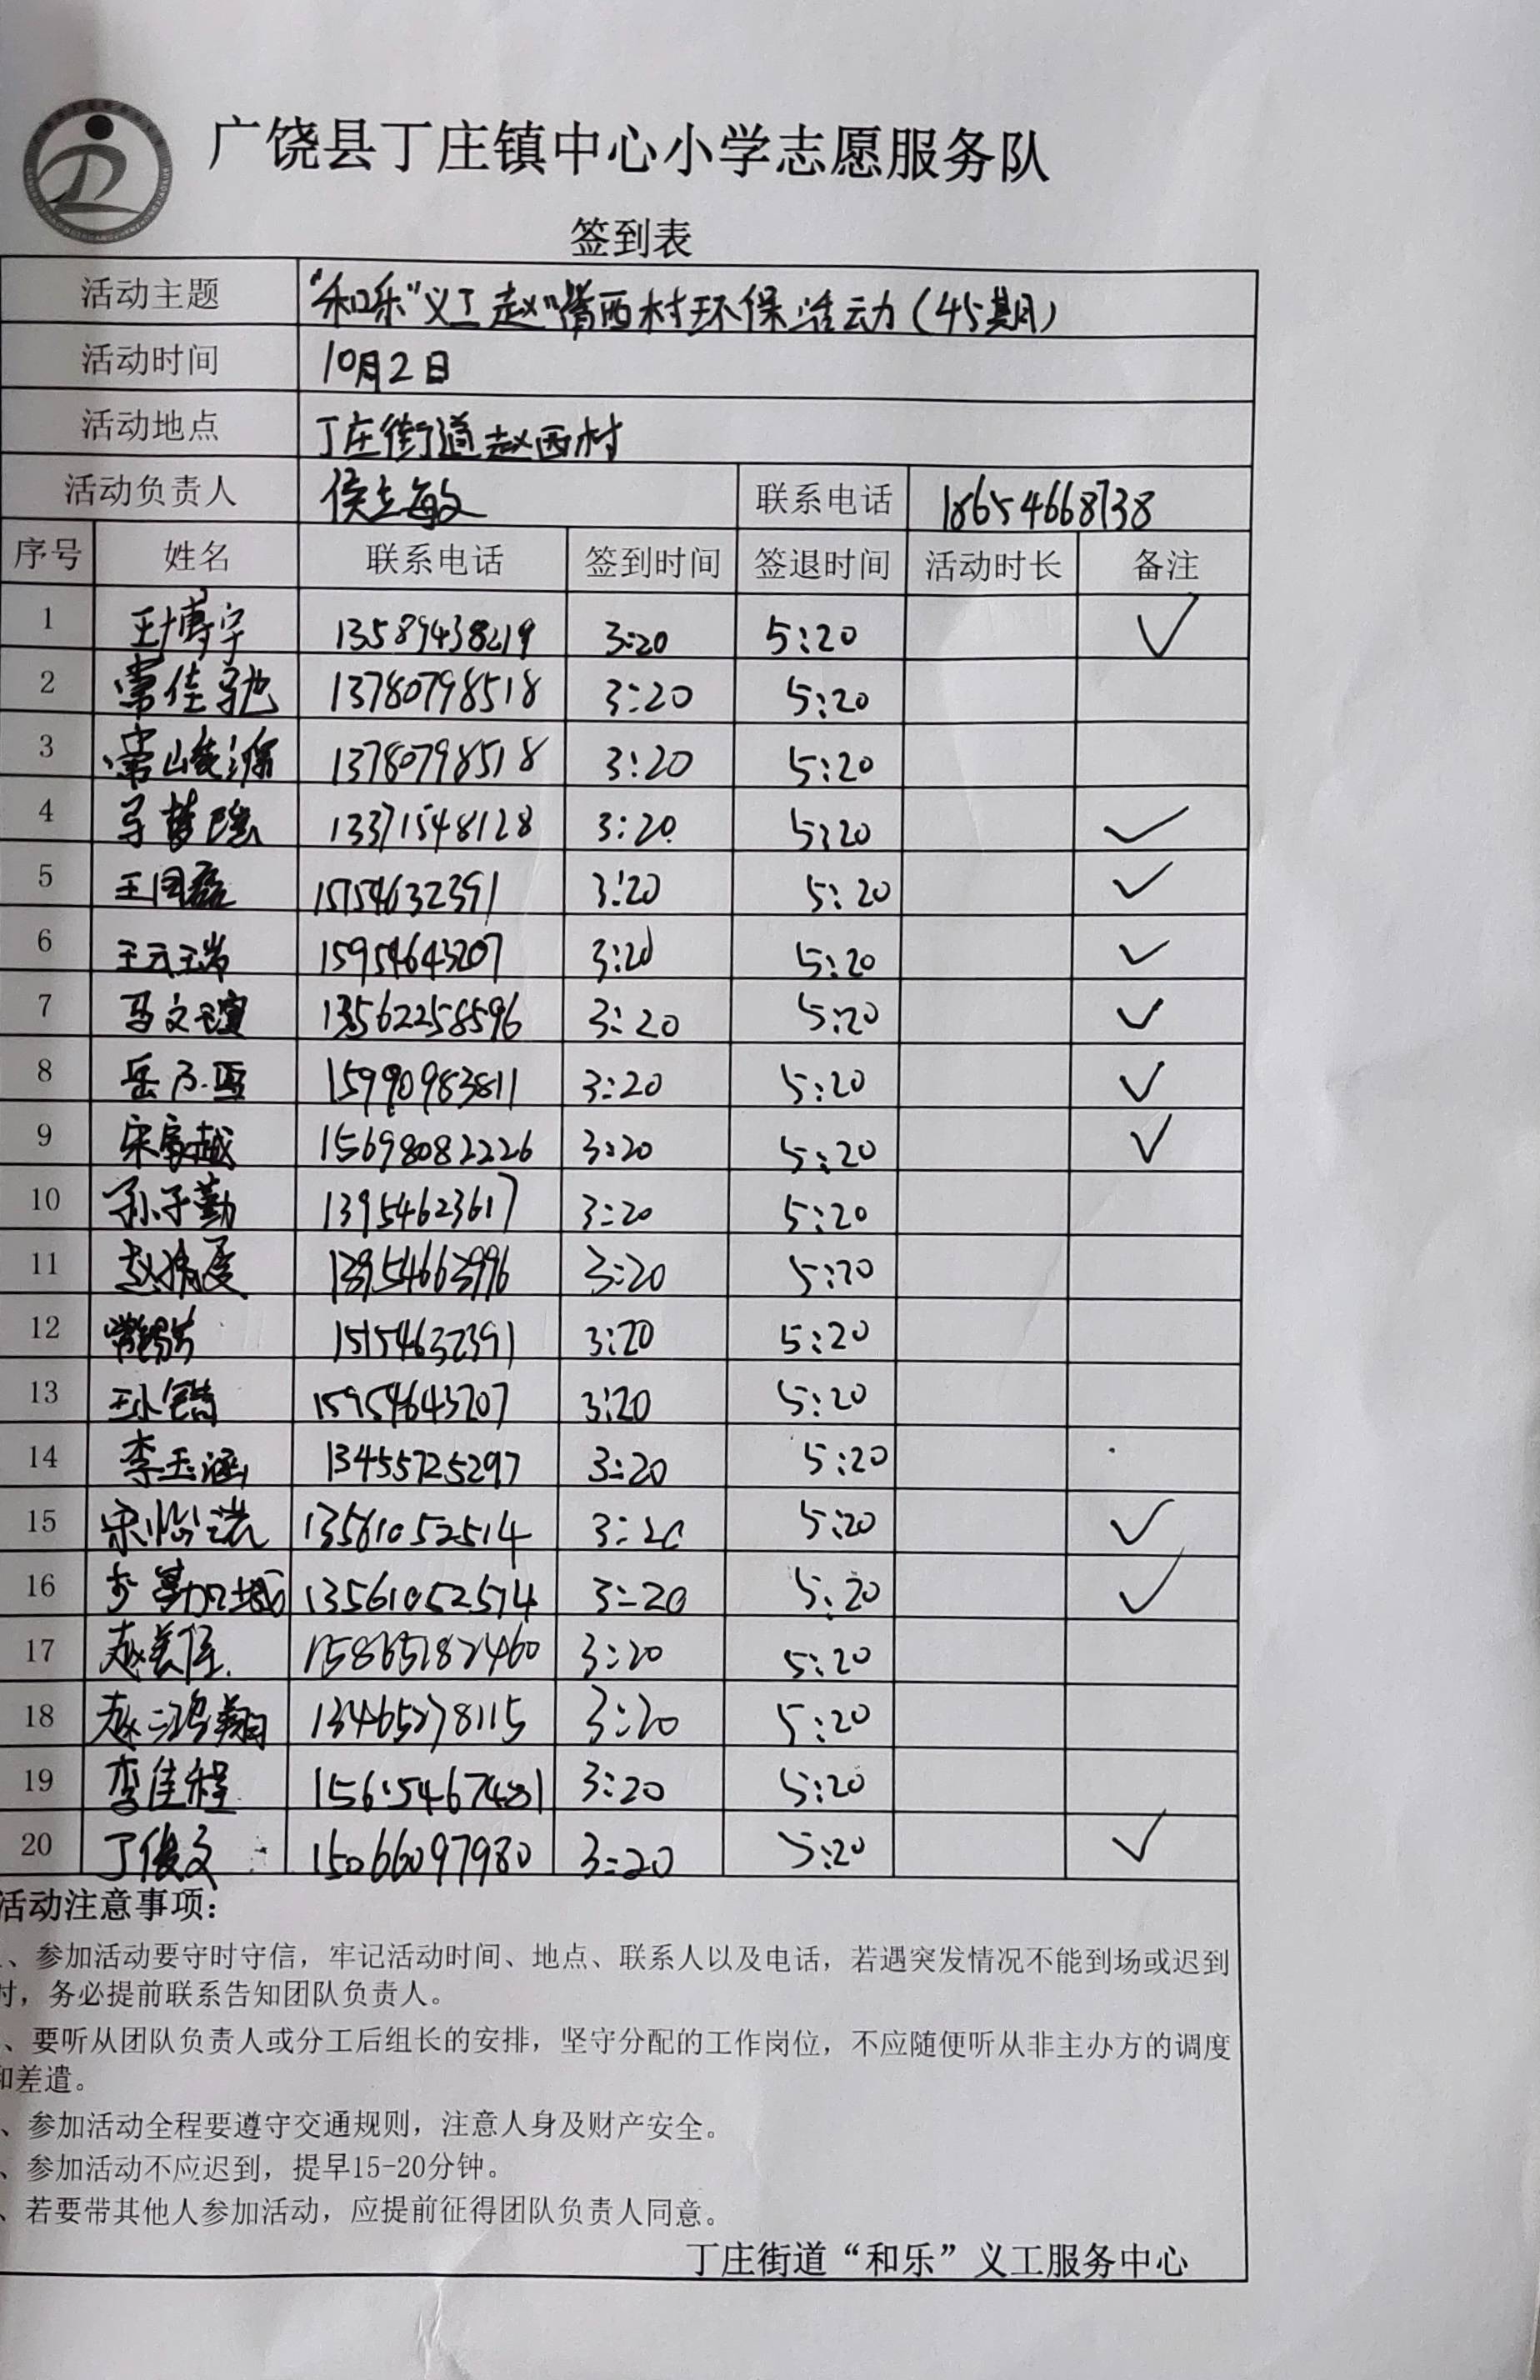 广饶县丁庄镇中心小学志愿服务队
签到表
活动主题 “和乐”义工赵嘴西村环保活动(45期)
活动时间 10月2日
活动地点 丁庄街道赵西村
活动负责人 侯立敏 联系电话 18654668738
序号 姓名 联系电话 签到时间 签退时间 活动时长 备注
1 王博宇 13589438219 3:20 5:20 ✓
2 常佳驰 13780798518 3:20 5:20
3 常峻源 13780798518 3:20 5:20
4 13371548128 3:20 5:20 ✓
5 15154632391 3:20 5:20 ✓
6 王云瑞 15954643207 3:20 5:20 ✓
7 马文瑄 13562258596 3:20 5:20 ✓
8 15990983811 3:20 5:20 ✓
9 宋家越 15698082226 3:20 5:20 ✓
10 孙子勤 13954623617 3:20 5:20
11 13954663996 3:20 5:20
12 15154632391 3:20 5:20
13 15954643207 3:20 5:20
14 李玉涵 13455725297 3:20 5:20
15 宋怡诺 13561052514 3:20 5:20 ✓
16 13561052514 3:20 5:20 ✓
17 赵美佳 15865182460 3:20 5:20
18 赵鸿翔 13465278115 3:20 5:20
19 李佳程 15615467481 3:20 5:20
20 丁俊文 15066097980 3:20 5:20 ✓
活动注意事项：
、参加活动要守时守信，牢记活动时间、地点、联系人以及电话，若遇突发情况不能到场或迟到
时，务必提前联系告知团队负责人。
、要听从团队负责人或分工后组长的安排，坚守分配的工作岗位，不应随便听从非主办方的调度
和差遣。
、参加活动全程要遵守交通规则，注意人身及财产安全。
、参加活动不应迟到，提早15-20分钟。
、若要带其他人参加活动，应提前征得团队负责人同意。
丁庄街道“和乐”义工服务中心